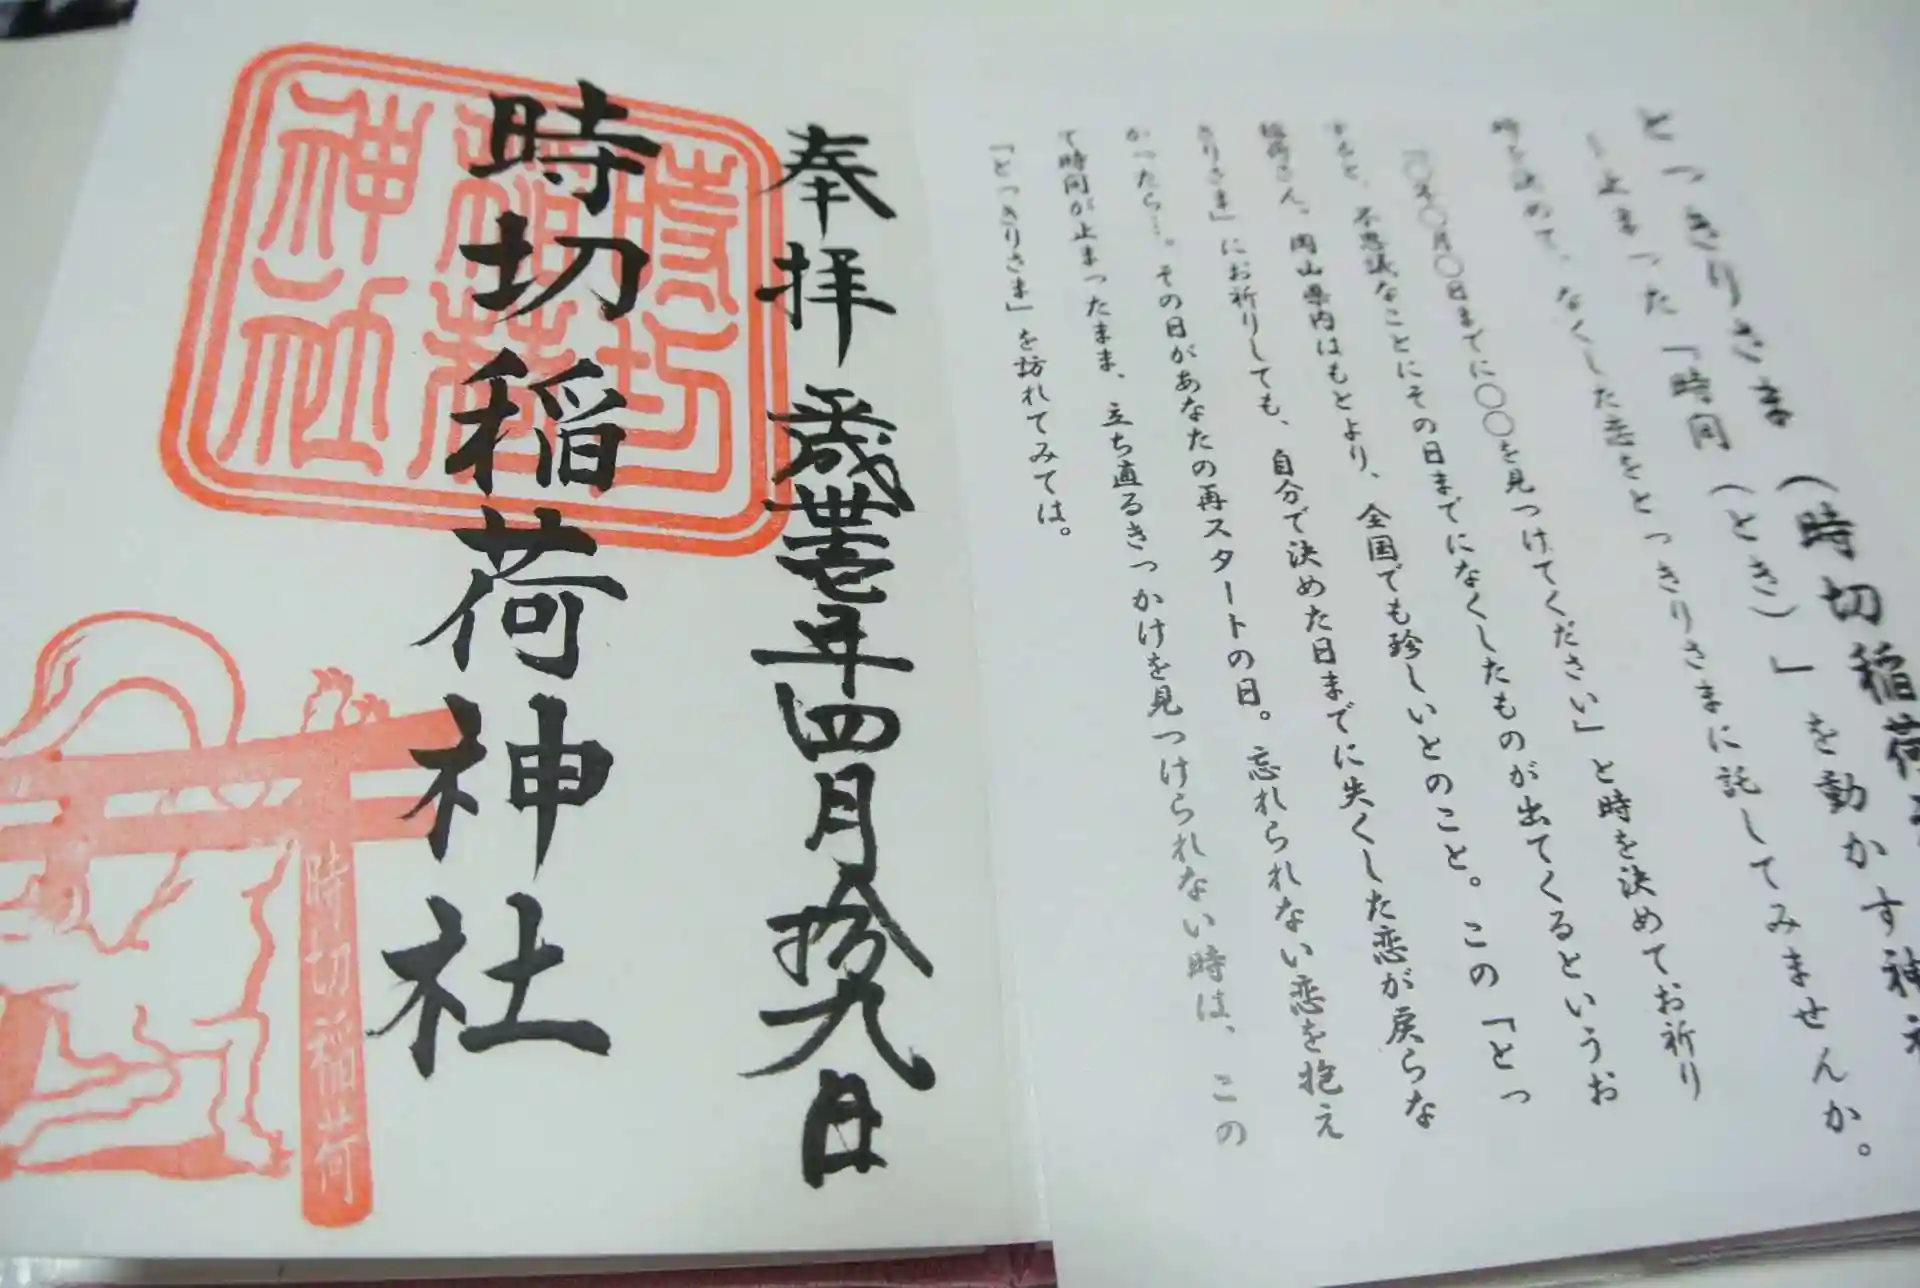 とっきりさま（時切稲荷神
止まった「時間（とき）」を動かす神社
時を決めて、なくした恋をとっきりさまに託してみませんか。
「〇年〇月〇日までに〇〇〇を見つけてください」と時を決めてお祈り
すると、不思議なことにその日までになくしたものが出てくるというお
稲荷さん。岡山県内はもとより、全国でも珍しいとのこと。この「とっ
きりさま」にお祈りしても、自分で決めた日までに失くした恋が戻らな
かったら…。その日があなたの再スタートの日。忘れられない恋を抱え
て時間が止まったまま、立ち直るきっかけを見つけられない時は、この
「とっきりさま」を訪れてみては。
奉拝 平成丗壱年四月拾九日
時切稲荷神社
時切
稲荷
神社
時切稲荷